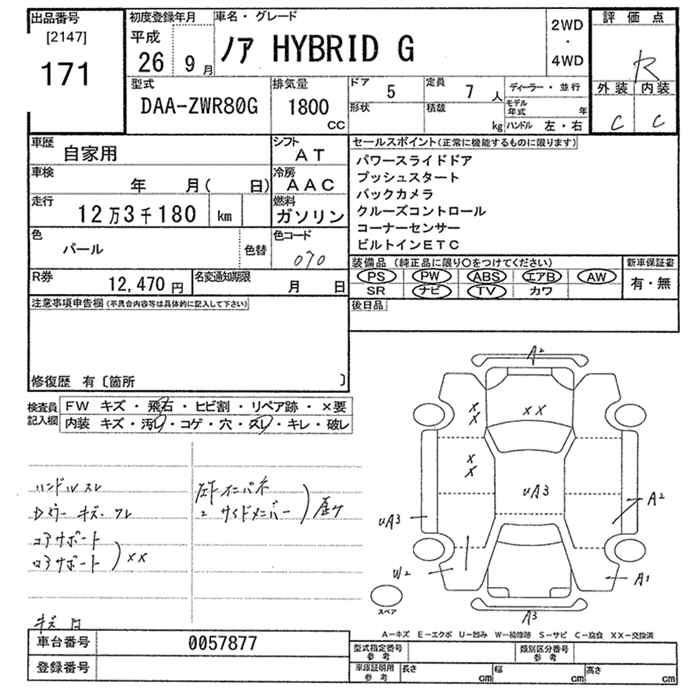 出品番号
[2147]
171
初度登録年月
平成
26 9月
車名・グレード
ノア HYBRID G
2WD
・
4WD
評価点
R
外装 内装
C C
型式
DAA-ZWR80G
排気量
1800
CC
ドア
5
定員
7 人
形状
積載
kg
ディーラー・並行
モデル年式 年
ハンドル 左・右
車歴
自家用
シフト
AT
車検
年 月( 日)
冷房
AAC
走行
12万3千180 km
燃料
ガソリン
色
パール
色替
色コード
070
R券
12,470円
名変通知期限
月 日
セールスポイント(正常に機能するものに限ります)
パワースライドドア
プッシュスタート
バックカメラ
クルーズコントロール
コーナーセンサー
ビルトインETC
装備品(純正品に限り○をつけてください)
PS PW ABS エアB AW
SR ナビ TV カワ
新車保証書
有・無
後日品
注意事項申告欄(不具合内容等は具体的に記入して下さい)
修復歴 有〔箇所 〕
検査員記入欄
FW キズ・飛石・ヒビ割・リペア跡・×要
内装 キズ・汚レ・コゲ・穴・スレ・キレ・破レ
ハンドルスレ
コアサポート
ロアサポート
××
左下インパネ
サイドメンバー
A2
××
××
××
uA3
uA3
A2
W2
A1
A3
スペア
A-キズ E-エクボ U-凹み W-補修跡 S-サビ C-腐食 XX-交換済
車台番号
0057877
登録番号
型式指定番号
参考
類別区分番号
参考
車庫証明用
参考
長さ cm
幅 cm
高さ cm